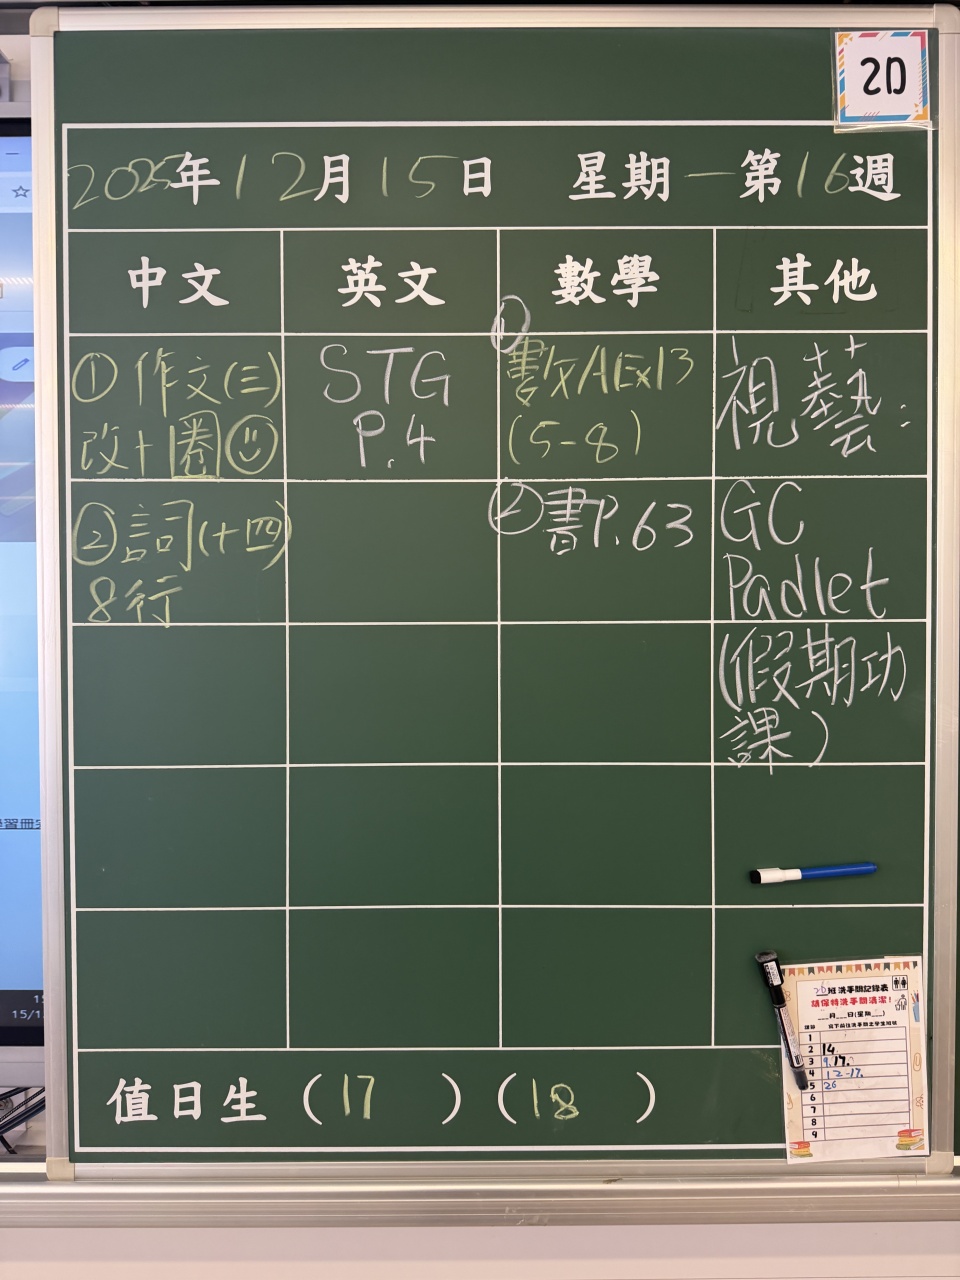 2D
2025年12月15日 星期一第16週
中文 英文 數學 其他
①作文(三)
改+圈
②詞(十四)
8行
STG
P.4
①
(5-8)
②書P.63
視藝:
GC
Padlet
(假期功
課)
值日生(17)(18)
2D班洗手間記錄表
請保持洗手間清潔!
___月___日(星期___)
1
2 14
3 9.17.
4 12-17.
5 26
6
7
8
9
15/1